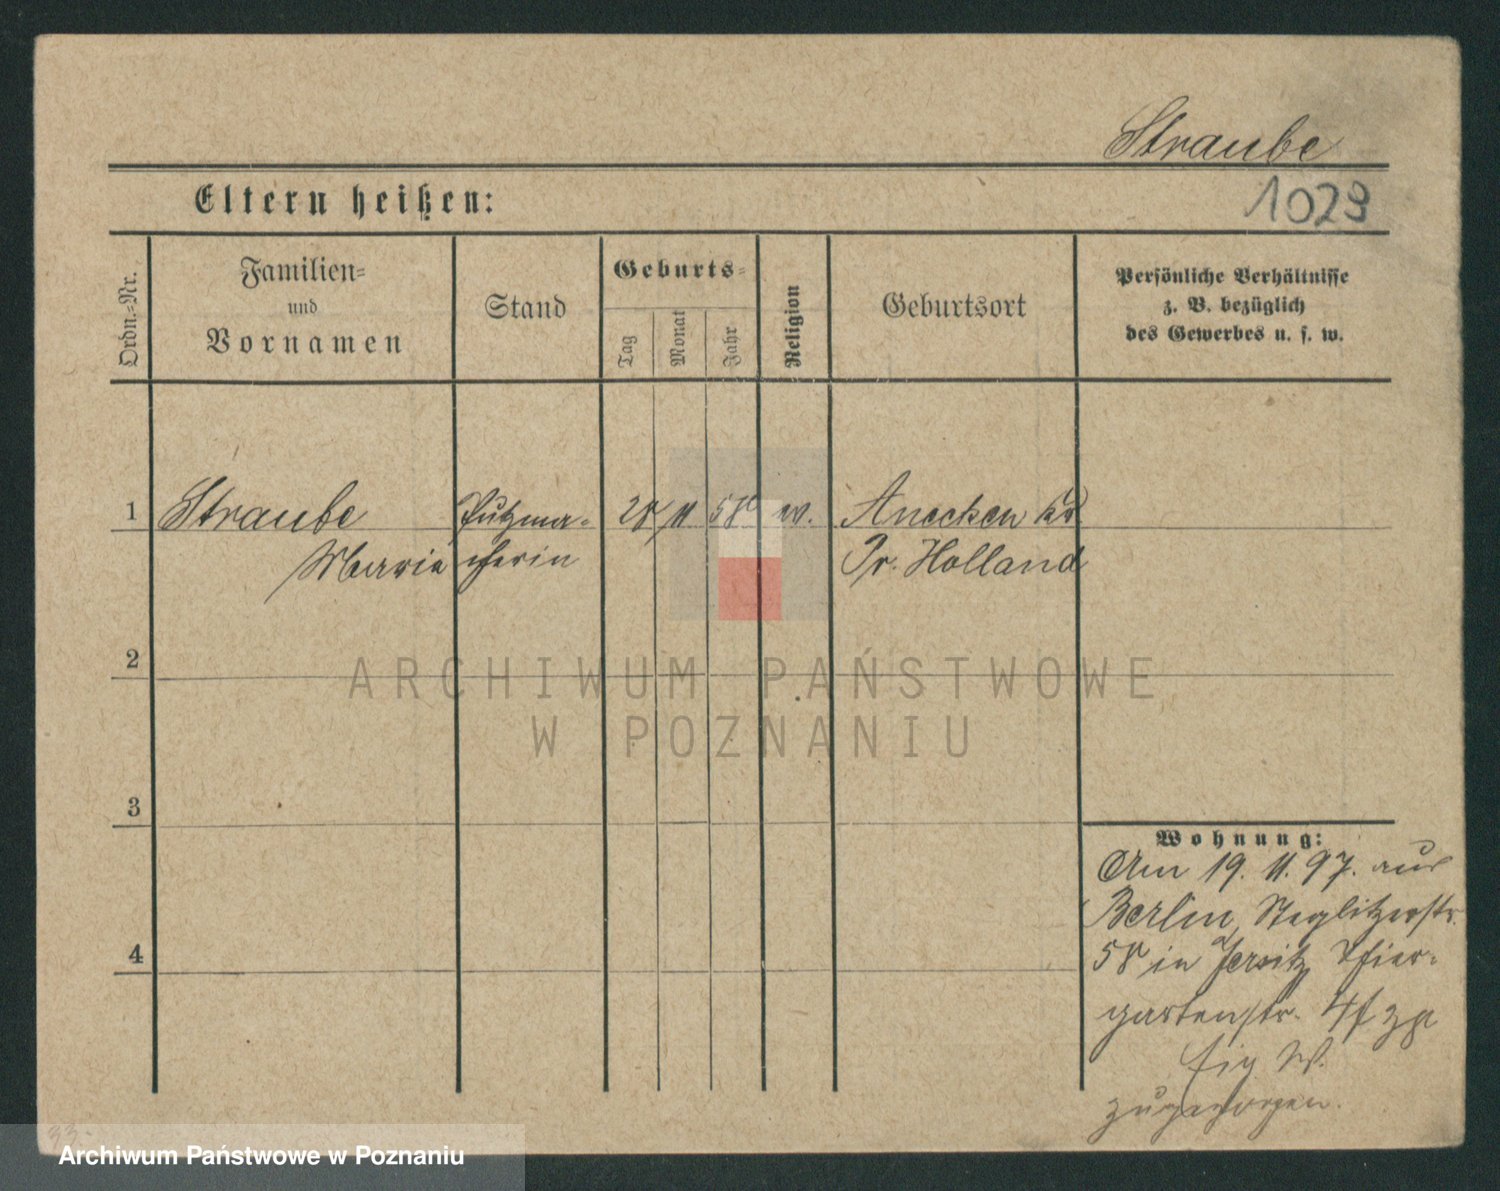 Straube
Eltern heißen:
1023
Ordn.-Nr.
Familien-
und
Vornamen
Stand
Geburts-
Tag
Monat
Jahr
Religion
Geburtsort
Persönliche Verhältnisse
z. B. bezüglich
des Gewerbes u. s. w.
1 Straube Putzma- 28 11 58 ev. Anecken Kr.
Marie cherin Pr. Holland
2
3
4
Wohnung:
Am 19. 11. 97. aus
Berlin, Steglitzerstr.
58 in Jersitz Thier-
gartenstr. 4
W.
zugezogen.
ARCHIWUM PAŃSTWOWE
W POZNANIU
33.
Archiwum Państwowe w Poznaniu